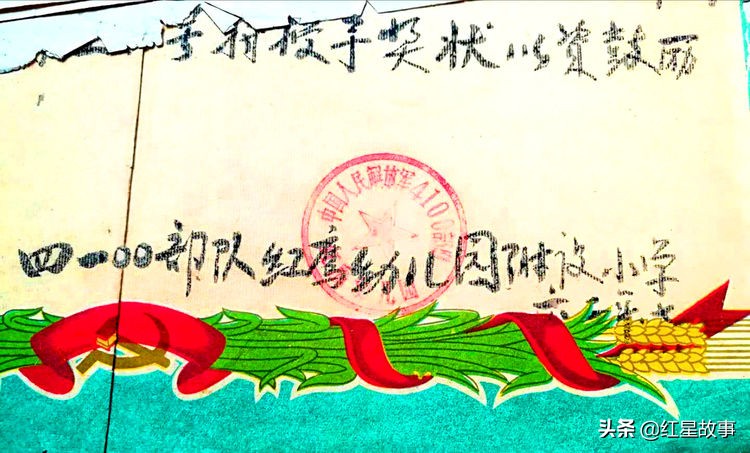 特授予奖状以资鼓励
中国人民解放军4100部队
四一00部队红鹰幼儿园附设小学
头条 @红星故事